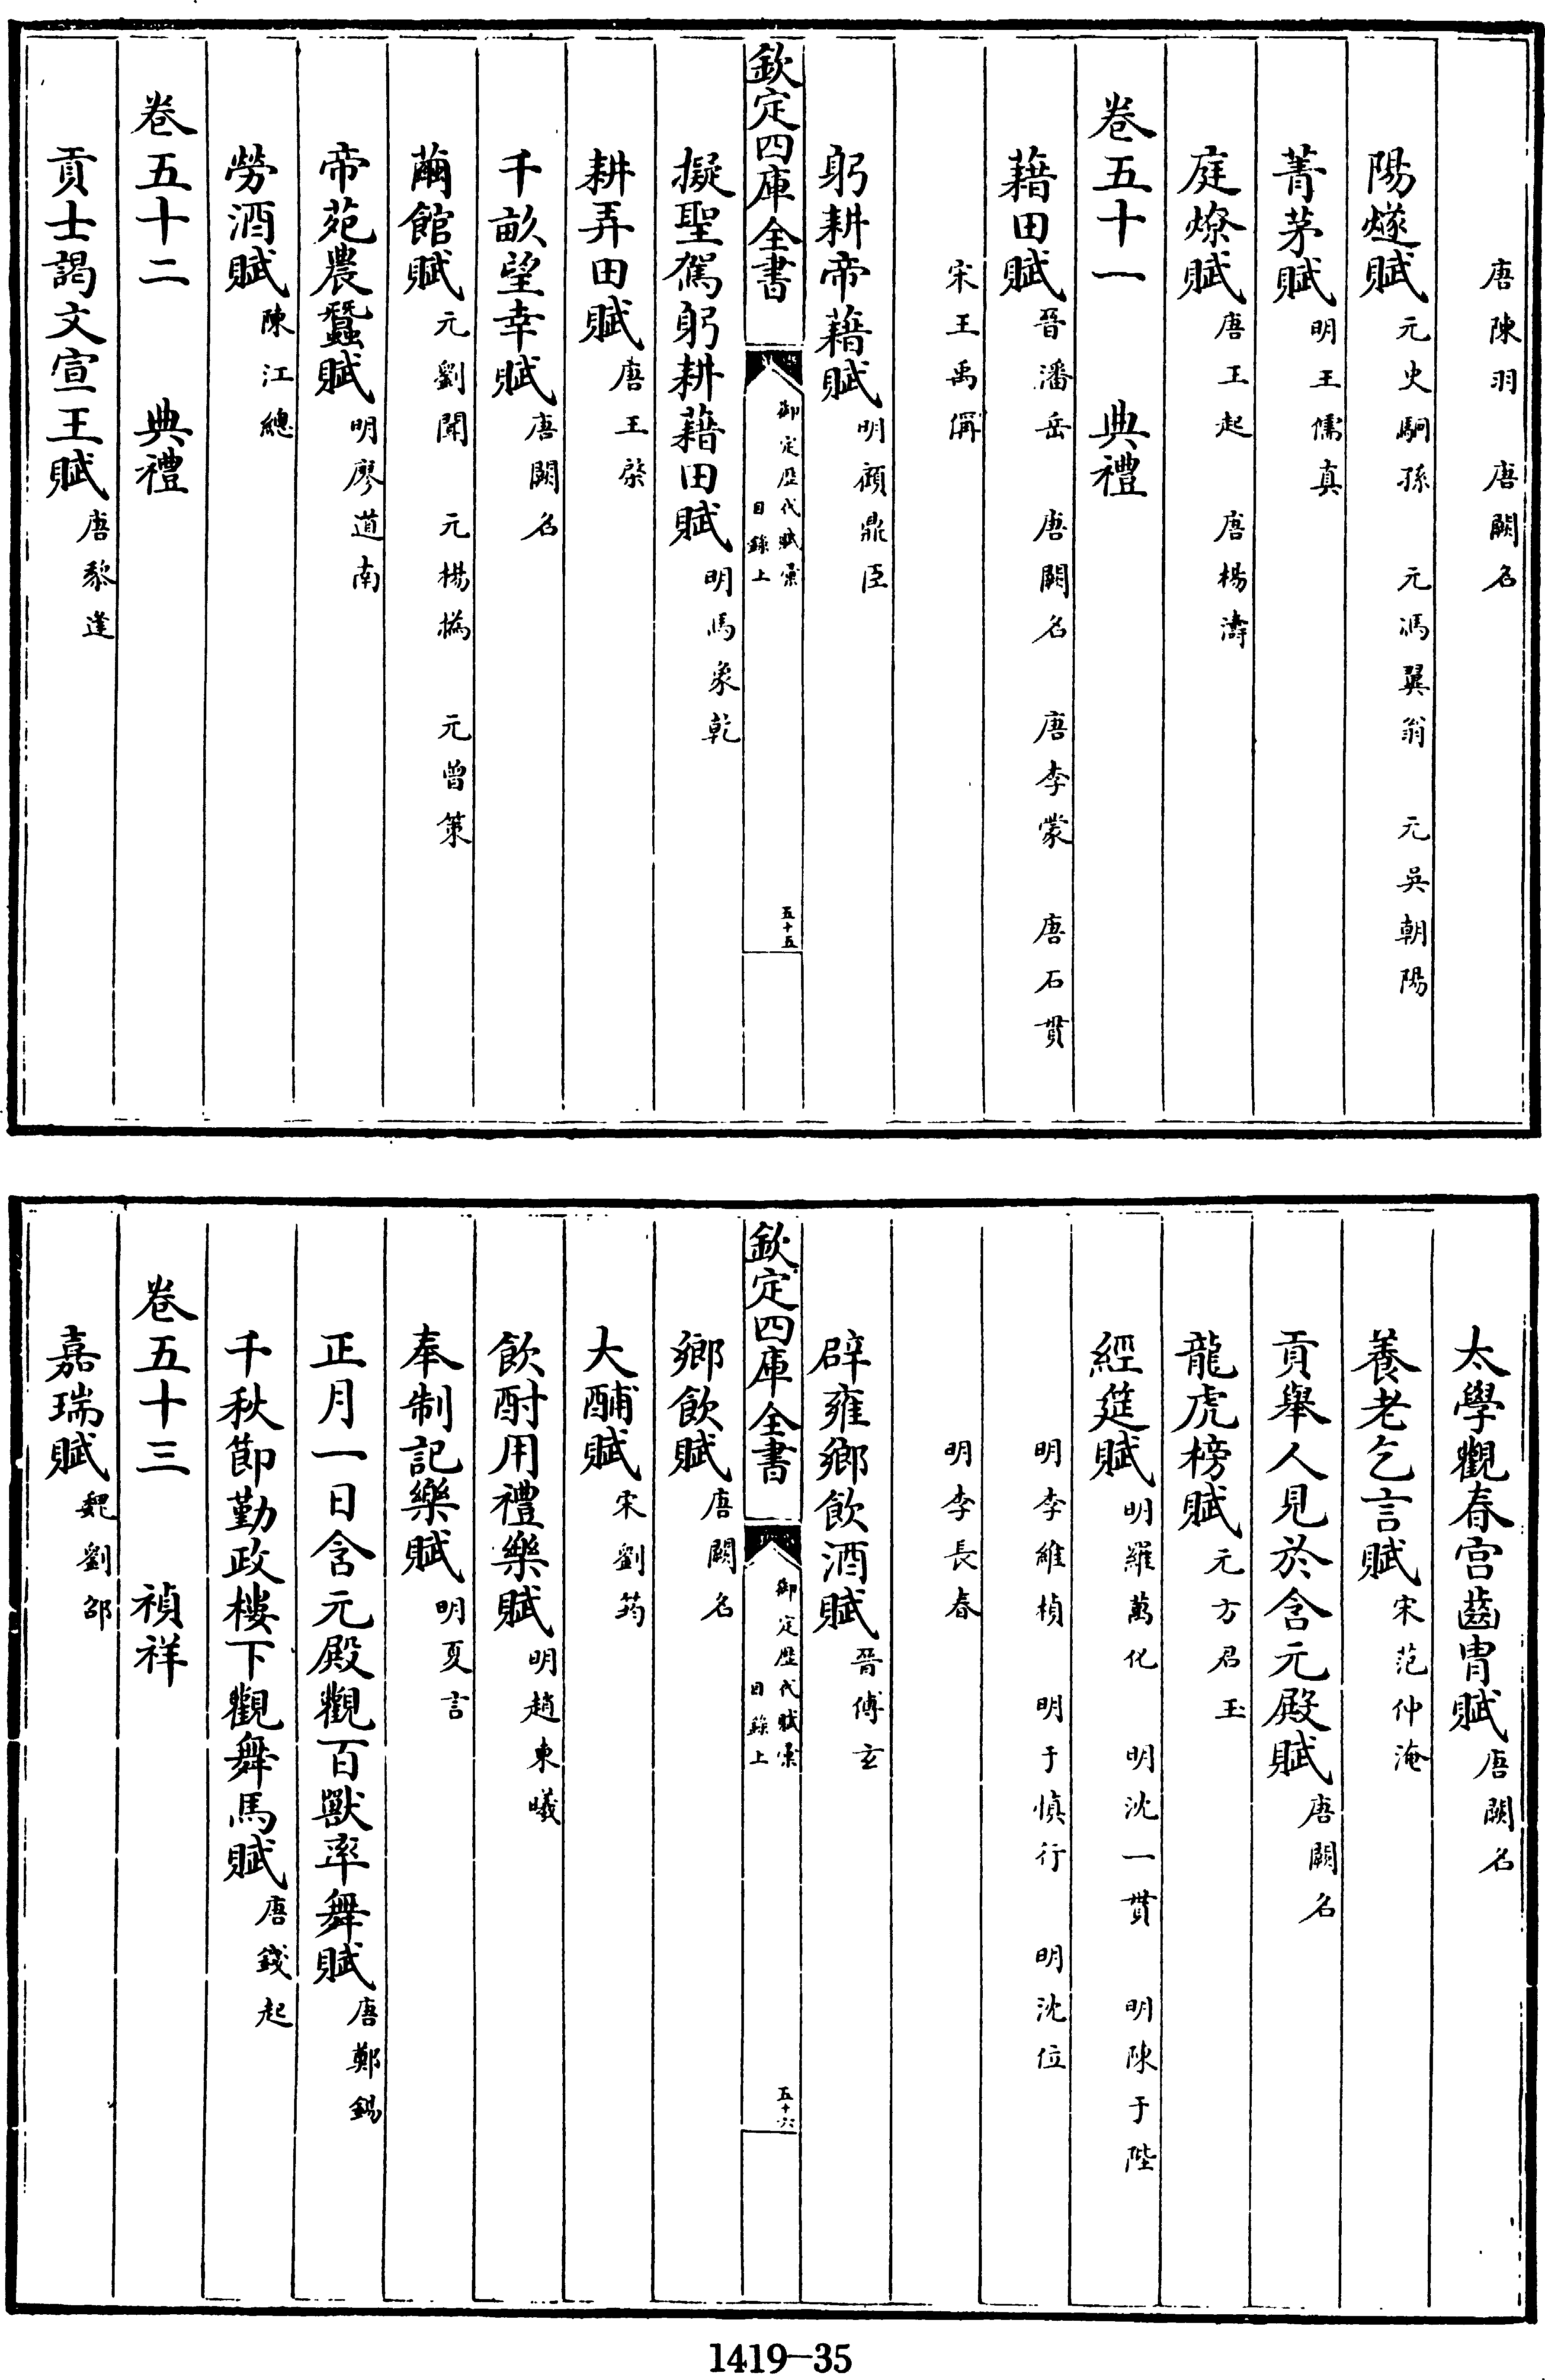 唐陳羽　唐闕名
陽燧賦元史駉孫　元馮翼翁　元吳朝陽
菁茅賦明王儒真
庭燎賦唐王起　唐楊濤
卷五十一　典禮
藉田賦晉潘岳　唐闕名　唐李蒙　唐石貫
宋王禹偁
躬耕帝藉賦明顧鼎臣
欽定四庫全書
御定歷代賦彙
目錄上
五十五
擬聖駕躬耕藉田賦明馬象乾
耕弄田賦唐王棨
千畝望幸賦唐闕名
繭館賦元劉聞　元楊撝　元曾策
帝苑農蠶賦明廖道南
勞酒賦陳江總
卷五十二　典禮
貢士謁文宣王賦唐黎逢
太學觀春宮齒胄賦唐闕名
養老乞言賦宋范仲淹
貢舉人見於含元殿賦唐闕名
龍虎榜賦元方君玉
經筵賦明羅萬化　明沈一貫　明陳于陛
明李維楨　明于慎行　明沈位
明李長春
辟雍鄉飲酒賦晉傅玄
欽定四庫全書
御定歷代賦彙
目錄上
五十六
鄉飲賦唐闕名
大酺賦宋劉筠
飲酎用禮樂賦明趙東曦
奉制記樂賦明夏言
正月一日含元殿觀百獸率舞賦唐鄭錫
千秋節勤政樓下觀舞馬賦唐錢起
卷五十三　禎祥
嘉瑞賦魏劉邵
1419-35